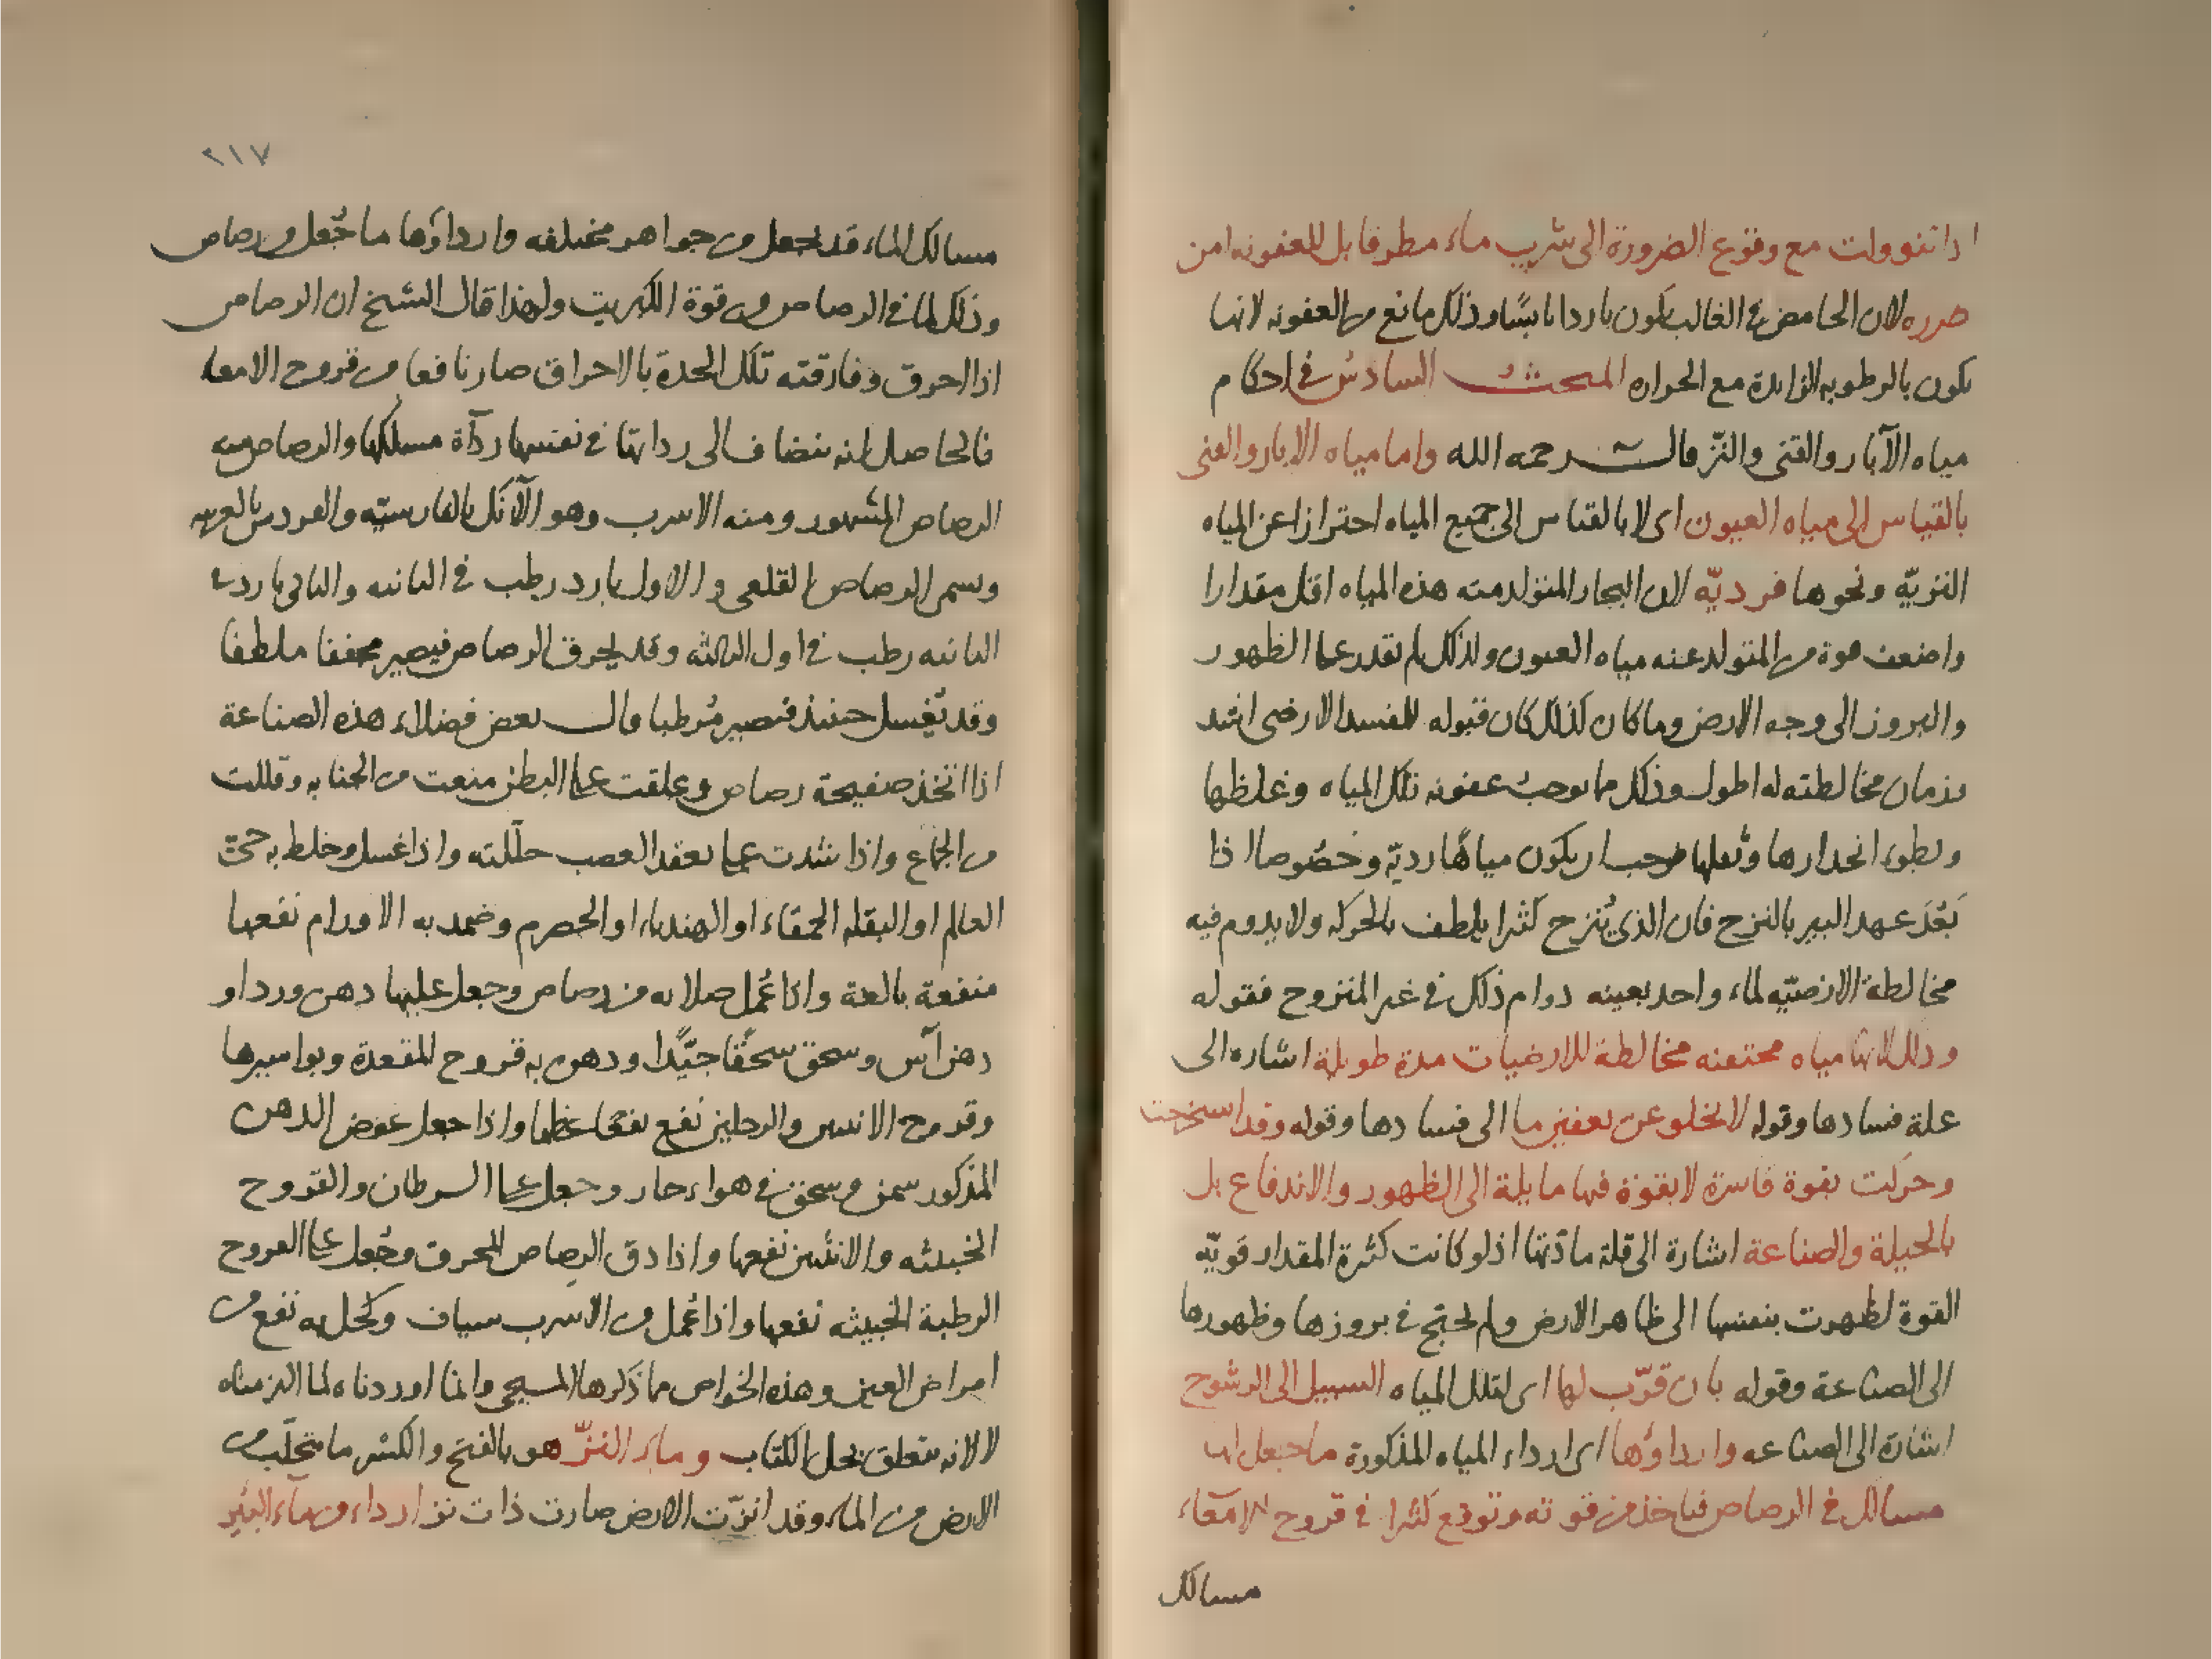 اذا تنوولت مع وقوع الضرورة الى شرب ماء مطر قابل للعفونه امن
ضرره لان الحامض فى الغالب يكون باردا يابسًا وذلك مانع من العفونه لانها
تكون بالرطوبه الزايدة مع الحراره المبحث السادس فى احكام
مياه الآبار والقنى والنزّ قال رحمه الله واما مياه الابار والقنى
بالقياس الى مياه العيون اى لا بالقياس الى جميع المياه احترازا عن المياه
النزيّة ونحوها فرديّه لان البخار المتولد منه هذه المياه اقل مقدارا
واضعف قوة من المتولد عنه مياه العيون ولذلك لم تقدر على الظهور
والبروز الى وجه الارض وما كان كذلك كان قبوله للمفسد الارضى اشد
وزمان مخالطته له اطول وذلك مما يوجب عفونه تلك المياه وغلظها
وبطوء انحدارها وثقلها فوجب ان يكون مياهًا رديّه وخصُوصا اذا
بَعُدَ عهد البير بالنزح فان الذى يُنزح كثيرا يلطف بالحركه ولا يدوم فيه
مخالطة الارضيّه لماء واحد بعينه دوام ذلك فى غير المنزوح فقوله
وذلك لانها مياه محتقنه مخالطة للارضيات مدة طويلة اشاره الى
علة فسادها وقوله لا يخلو عن تعفين ما الى فسادها وقوله وقد استخرجت
وحركت بقوة قاسرة لا بقوّة فيها مايلة الى الظهور والاندفاع بل
بالحيلة والصناعة اشارة الى قلة مادّتها اذ لو كانت كثيرة المقدار قويّه
القوة لظهرت بنفسها الى ظاهر الارض ولم تحتج فى بروزها وظهورها
الى الصناعة وقوله بان قرّب لها اى لتلك المياه السبيل الى الرشوح
اشارة الى الصناعه وارداؤها اى اردا المياه المذكورة ما جعل لها
مسالك فى الرصاص فياخذ من قوته وتوقع كثيرا فى قروح الامعاء
مسالك
٢١٧
مسالك الماء قد يجعل من جواهر مختلفه وارداؤها ما جُعل من رصاص
وذلك لما فى الرصاص من قوة الكبريت ولهذا قال الشيخ ان الرصاص
اذا احرق وفارقته تلك الحدة بالاحراق صار نافعا من قروح الامعاء
فالحاصل انه ينضاف الى رداتها فى نفسها ردآة مسلكها والرصاص منه
الرصاص المشهور ومنه الاسرب وهو الآنك بالفارسيّه بالعربيه
ويسمى الرصاص القلعى والاول بارد رطب فى الثانيه والثانى بارد فى
الثانيه رطب فى اول الثالثه وقد يحرق الرصاص فيصير مجففا ملطفا
وقد يُغسل حينئذ فيصير مُرطبا قال بعض فضلاء هذه الصناعة
اذا اتخذ صفيحة رصاص وعلقت على البطن منعت من الجنابه وقللت
من الجماع واذا شدت على تعقد العصب حلّلته واذا غسل وخلط به حىّ
العالم او البقله الحمقاء او الهندباء او الحصرم وضمد به الاورام نفعها
منفعة بالغة واذا عُمل صلايه من رصاص وجعل عليها دهن ورد او
دهن آس وسحق سحقًا جيّدا ودهن به قروح المقعدة وبواسيرها
وقروح الانثيين والرجلين نفع نفعًا عظيما واذا جعل عوض الدهن
المذكور سمن وسحق فى هواء حار وجعل على السرطان والقروح
الخبيثه والانثيين نفعها واذا دق الرصاص المحرق وجُعل على القروح
الرطبة الخبيثه نفعها واذا عُمل من الاسرب شياف وكحل به نفع من
امراض العين وهذه الخواص مما ذكرها المسيحى وانما اوردناه لما التزمناه
لا لانه يتعلق بحل الكتاب وماء النزّ هو بالفتح والكسر ما يتحلّب من
الارض من الماء وقد انزّت الارض صارت ذات نز اردا من ماء البئير